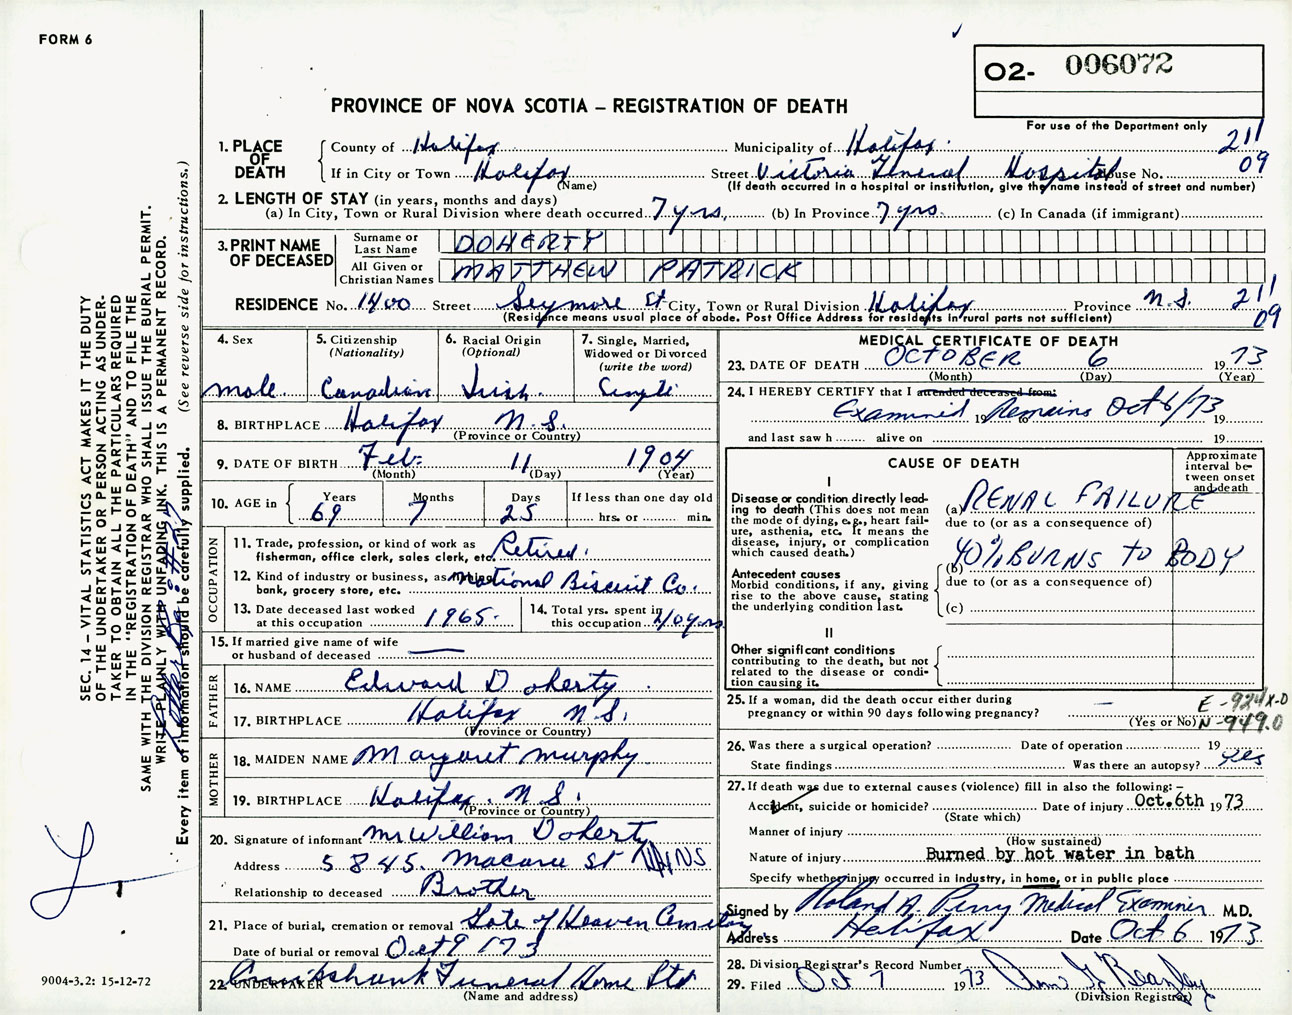 FORM 6
O2- 006072
PROVINCE OF NOVA SCOTIA – REGISTRATION OF DEATH
For use of the Department only
1. PLACE OF DEATH
County of Halifax Municipality of Halifax 211
If in City or Town Halifax Street Victoria General Hospital House No. 09
(Name) (If death occurred in a hospital or institution, give the name instead of street and number)
2. LENGTH OF STAY (in years, months and days)
(a) In City, Town or Rural Division where death occurred 7 yrs. (b) In Province 7 yrs. (c) In Canada (if immigrant)
3. PRINT NAME OF DECEASED
Surname or Last Name DOHERTY
All Given or Christian Names MATTHEW PATRICK
RESIDENCE No. 1400 Street Seymore St City, Town or Rural Division Halifax Province N.S. 211
(Residence means usual place of abode. Post Office Address for residents in rural parts not sufficient) 09
4. Sex
male
5. Citizenship
(Nationality)
Canadian
6. Racial Origin
(Optional)
Irish
7. Single, Married, Widowed or Divorced
(write the word)
Single
8. BIRTHPLACE Halifax N.S.
(Province or Country)
9. DATE OF BIRTH Feb. 11 1904
(Month) (Day) (Year)
10. AGE in Years Months Days If less than one day old
69 7 25 hrs. or min.
OCCUPATION
11. Trade, profession, or kind of work as fisherman, office clerk, sales clerk, etc. Retired.
12. Kind of industry or business, as bank, grocery store, etc. National Biscuit Co.
13. Date deceased last worked at this occupation 1965.
14. Total yrs. spent in this occupation 40 yrs.
15. If married give name of wife or husband of deceased
FATHER
16. NAME Edward Doherty
17. BIRTHPLACE Halifax N.S.
(Province or Country)
MOTHER
18. MAIDEN NAME Margaret Murphy
19. BIRTHPLACE Halifax. N.S.
(Province or Country)
20. Signature of informant Mr William Doherty
Address 5845. St NS
Relationship to deceased Brother
21. Place of burial, cremation or removal Gate of Heaven Cemetery
Date of burial or removal Oct 9 173
22. UNDERTAKER Cruikshank Funeral Home Ltd
(Name and address)
MEDICAL CERTIFICATE OF DEATH
23. DATE OF DEATH OCTOBER 6 1973
(Month) (Day) (Year)
24. I HEREBY CERTIFY that I attended deceased from:
Examined 19 Remains to Oct 6/73 19
and last saw h alive on 19
CAUSE OF DEATH
Approximate interval between onset and death
I
Disease or condition directly leading to death (This does not mean the mode of dying, e.g., heart failure, asthenia, etc. It means the disease, injury, or complication which caused death.)
(a) RENAL FAILURE
due to (or as a consequence of)
Antecedent causes
Morbid conditions, if any, giving rise to the above cause, stating the underlying condition last.
(b) 40% BURNS TO BODY
due to (or as a consequence of)
(c)
II
Other significant conditions
contributing to the death, but not related to the disease or condition causing it.
25. If a woman, did the death occur either during pregnancy or within 90 days following pregnancy? –
(Yes or No)
E-924X-0
N-949.0
26. Was there a surgical operation? Date of operation 19
State findings Was there an autopsy? yes
27. If death was due to external causes (violence) fill in also the following: –
Accident, suicide or homicide? Date of injury Oct.6th 1973
(State which)
Manner of injury
(How sustained)
Nature of injury Burned by hot water in bath
Specify whether injury occurred in industry, in home, or in public place
Signed by Roland A. Perry Medical Examiner M.D.
Address Halifax Date Oct 6 1973
28. Division Registrar's Record Number
29. Filed Oct 7 1973
(Division Registrar)
SEC. 14 – VITAL STATISTICS ACT MAKES IT THE DUTY
OF THE UNDERTAKER OR PERSON ACTING AS UNDER-
TAKER TO OBTAIN ALL THE PARTICULARS REQUIRED
IN THE "REGISTRATION OF DEATH" AND TO FILE THE
SAME WITH THE DIVISION REGISTRAR WHO SHALL ISSUE THE BURIAL PERMIT.
WRITE PLAINLY WITH UNFADING INK. THIS IS A PERMANENT RECORD.
Every item of information should be carefully supplied. (See reverse side for instructions.)
9004-3.2: 15-12-72